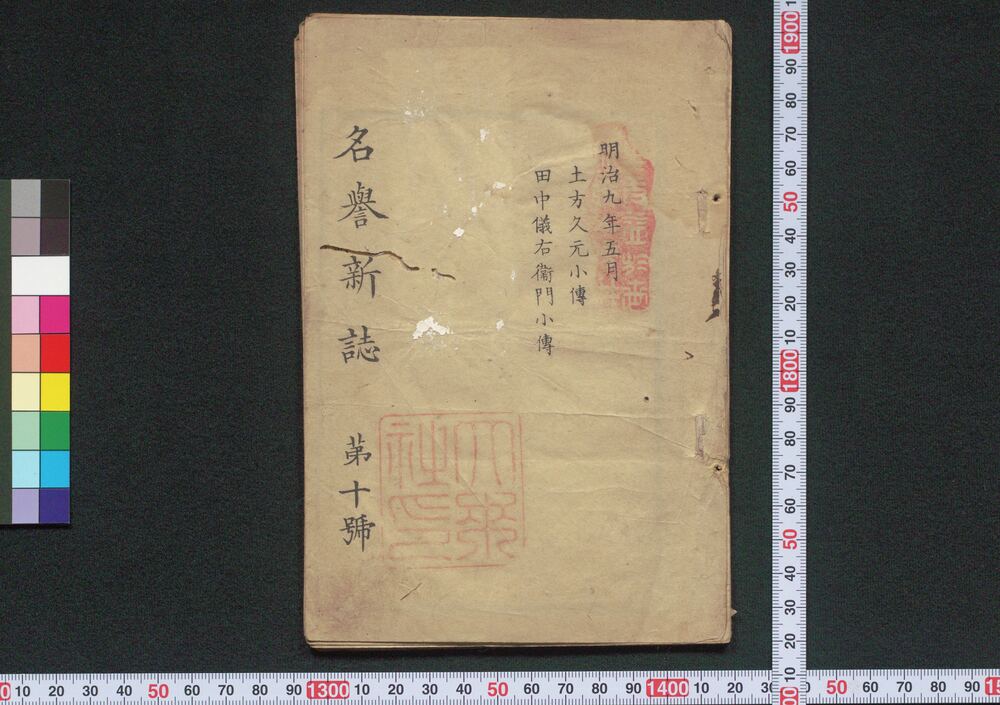 明治九年五月
土方久元小傳
田中儀右衞門小傳
名譽新誌 第十號
1900
90
80
70
60
50
40
30
20
10
1800
90
80
70
60
50
40
30
20
10
10 20 30 40 50 60 70 80 90 1300 10 20 30 40 50 60 70 80 90 1400 10 20 50 60 70 80 90